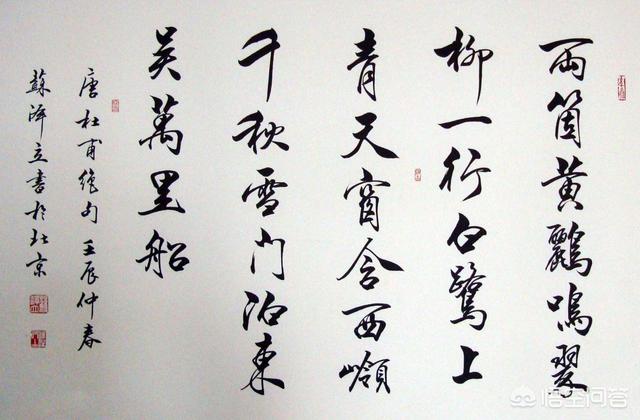 兩箇黃鸝鳴翠
柳一行白鷺上
青天窗含西嶺
千秋雪門泊東
吴萬里船
唐杜甫絕句 壬辰仲春
蘇澤立書於北京
悟空问答